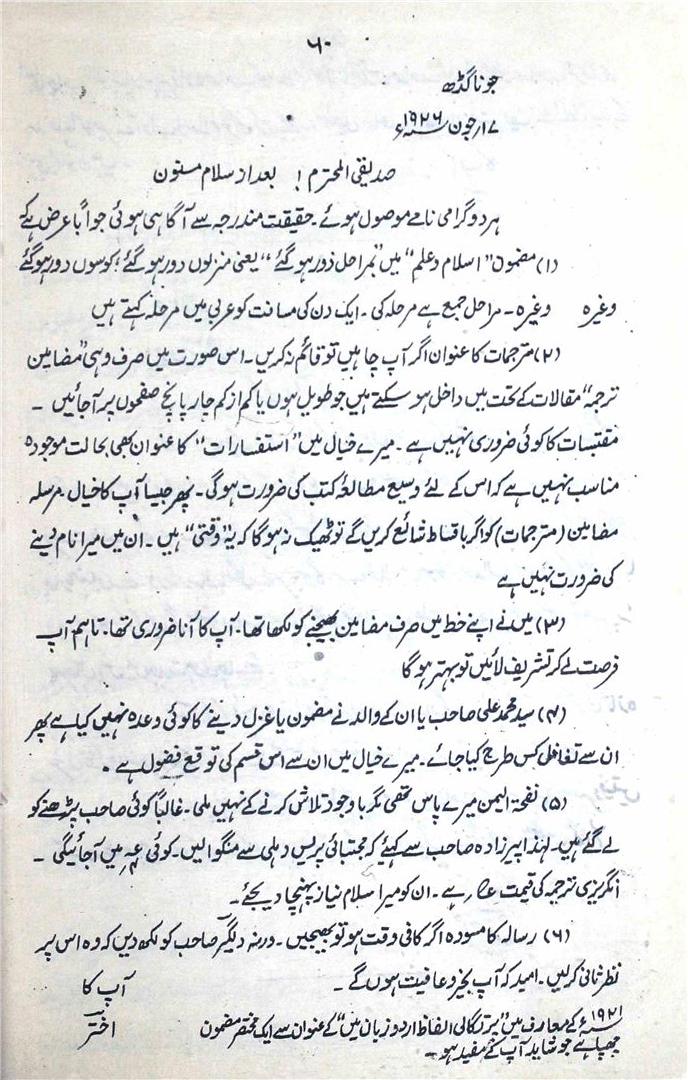 ۶۰
جوناگڈھ
۱۷؍جون ۱۹۲۶ء
صدیقی المحترم! بعد از سلام مسنون
ہر دو گرامی نامے موصول ہوئے۔ حقیقت مندرجہ سے آگاہی ہوئی جواباً عرض ہے کہ
(۱) مضمون "اسلام و علم" میں "بمراحل دور ہو گئے" یعنی منزلوں دور ہو گئے؛ کوسوں دور ہو گئے
وغیرہ وغیرہ۔ مراحل جمع ہے مرحلہ کی۔ ایک دن کی مسافت کو عربی میں مرحلہ کہتے ہیں
(۲) مترجمات کا عنوان اگر آپ چاہیں تو قائم نہ کریں۔ اس صورت میں صرف وہی "مضامین
ترجمہ" مقالات کے تحت میں داخل ہو سکتے ہیں جو طویل ہوں یا کم از کم چار پانچ صفحوں پر آجائیں۔
مقتبسات کا کوئی ضروری نہیں ہے۔ میرے خیال میں "استفسارات" کا عنوان بھی بحالت موجودہ
مناسب نہیں ہے کہ اس کے لئے وسیع مطالعۂ کتب کی ضرورت ہوگی۔ پھر جیسا آپ کا خیال۔ مرسلہ
مضامین (مترجمات) کو اگر باقساط شائع کریں گے تو ٹھیک نہ ہوگا کہ یہ "وقتی" ہیں۔ ان میں میرا نام دینے
کی ضرورت نہیں ہے
(۳) میں نے اپنے خط میں صرف مضامین بھیجنے کو لکھا تھا۔ آپ کا آنا ضروری تھا۔ تاہم آپ
فرصت لے کر تشریف لائیں تو بہتر ہوگا
(۴) سید محمد علی صاحب یا ان کے والد نے مضمون یا غزل دینے کا کوئی وعدہ نہیں کیا ہے پھر
ان سے تغافل کس طرح کیا جائے۔ میرے خیال میں ان سے اس قسم کی توقع فضول ہے۔
(۵) نفحۃ الیمن میرے پاس تھی مگر باوجود تلاش کرنے کے نہیں ملی۔ غالباً کوئی صاحب پڑھنے کو
لے گئے ہیں۔ لہٰذا پیرزادہ صاحب سے کہئے کہ مجتبائی پریس دہلی سے منگوا لیں۔ کوئی میں آجائیگی۔
انگریزی ترجمہ کی قیمت ہے۔ ان کو میرا سلام نیاز پہنچا دیجئے۔
(۶) رسالہ کا مسودہ اگر کافی وقت ہو تو بھیجیں۔ ورنہ دیگر صاحب کو لکھ دیں کہ وہ اس پر
نظر ثانی کر لیں۔ امید کہ آپ بخیر و عافیت ہوں گے۔
آپ کا
اختر
۱۹۲۱ء کے معارف میں "پرتگالی الفاظ اردو زبان میں" کے عنوان سے ایک مختصر مضمون
چھپا ہے جو شاید آپ کے مفید ہو۔